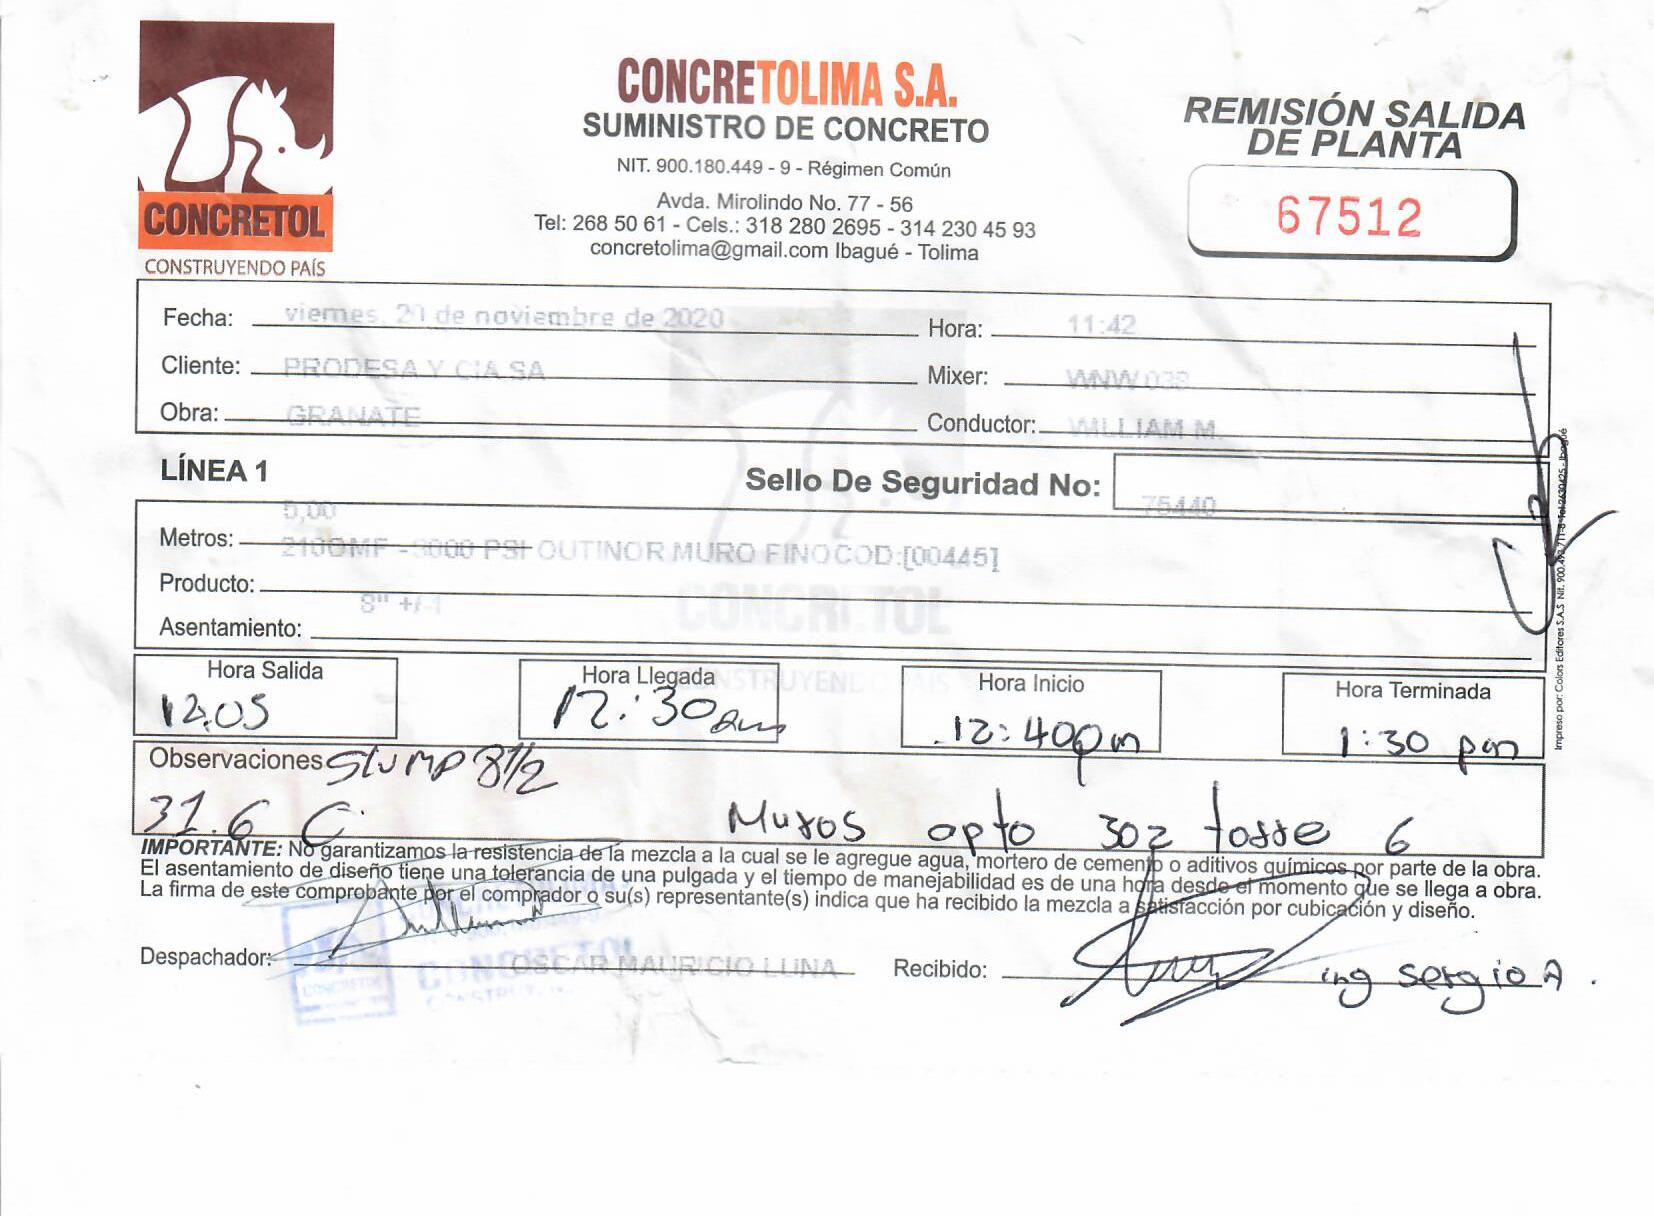 CONCRETOL
CONSTRUYENDO PAÍS
CONCRETOLIMA S.A.
SUMINISTRO DE CONCRETO
NIT. 900.180.449 - 9 - Régimen Común
Avda. Mirolindo No. 77 - 56
Tel: 268 50 61 - Cels.: 318 280 2695 - 314 230 45 93
concretolima@gmail.com Ibagué - Tolima
REMISIÓN SALIDA
DE PLANTA
67512
Fecha: viernes, 20 de noviembre de 2020 Hora: 11:42
Cliente: PRODESA Y CIA SA Mixer: WNW 038
Obra: GRANATE Conductor: WILLIAM M.
LÍNEA 1 Sello De Seguridad No: 75440
5,00
Metros: 210OMF - 3000 PSI OUTINOR MURO FINOCOD:[00445]
Producto:
8" +/-1
Asentamiento:
CONCRETOL
CONSTRUYENDO PAÍS
Hora Salida Hora Llegada Hora Inicio Hora Terminada
12:05 12:30 12:40pm 1:30 pm
Observaciones Slump 8 1/2
31.6 C. Muros apto 302 torre 6
IMPORTANTE: No garantizamos la resistencia de la mezcla a la cual se le agregue agua, mortero de cemento o aditivos químicos por parte de la obra.
El asentamiento de diseño tiene una tolerancia de una pulgada y el tiempo de manejabilidad es de una hora desde el momento que se llega a obra.
La firma de este comprobante por el comprador o su(s) representante(s) indica que ha recibido la mezcla a satisfacción por cubicación y diseño.
Despachador: OSCAR MAURICIO LUNA Recibido: ing Sergio A.
CONCRETOL
Impreso por: Colors Editores S.A.S Nit. 900.493.711-8 Tel 2630425 - Ibagué